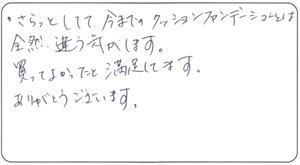 ・さらっとしてて、今までのクッションファンデーションとは
全然違う気がします。
買ってよかったと満足してます。
ありがとうございます。